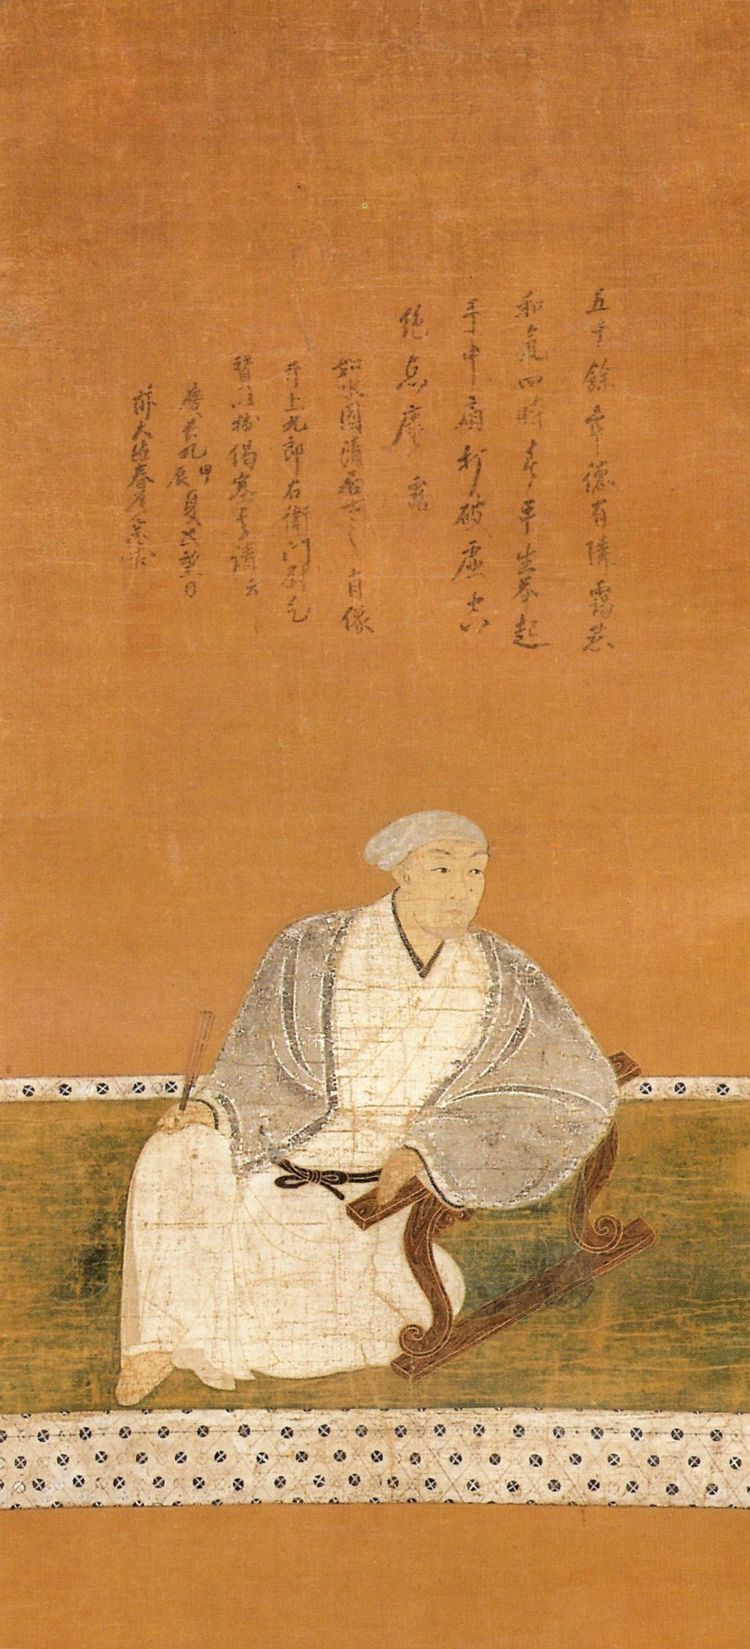 五十餘年德有隣靄然
和氣四時春平生拳起
手中扇打破虚空
絶点塵
如水圓清居士之肖像
井上九郎右衛門尉乞
賛以偈塞其請云
慶長九甲辰夏五望日
前大德春屋宗園